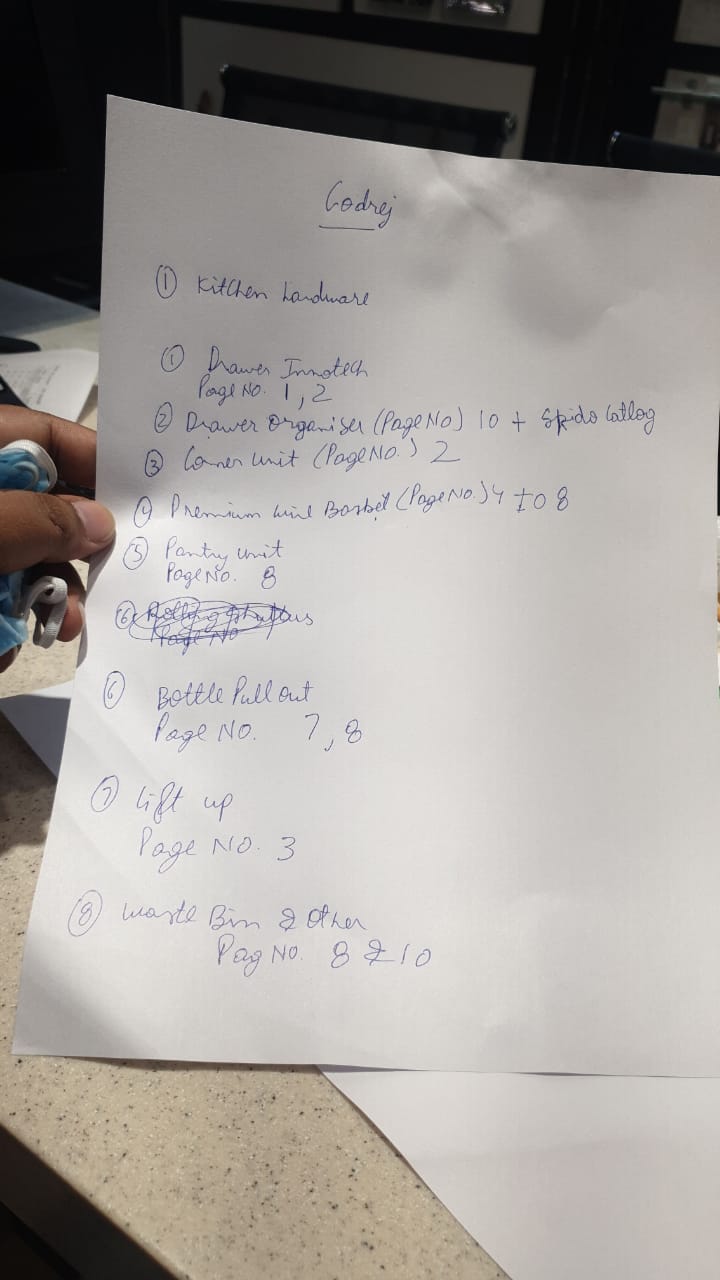 Godrej
① Kitchen Hardware
① Drawer Innotech
Page No. 1, 2
② Drawer Organiser (Page No) 10 + Spido Catlog
③ Corner Unit (Page No.) 2
④ Premium Wire Basket (Page No.) 4 to 8
⑤ Pantry unit
Page No. 8
⑥ Rolling Shutters
Page No
⑥ Bottle Pull out
Page No. 7, 8
⑦ Lift up
Page No. 3
⑧ Waste Bin & Other
Pag No. 8 & 10